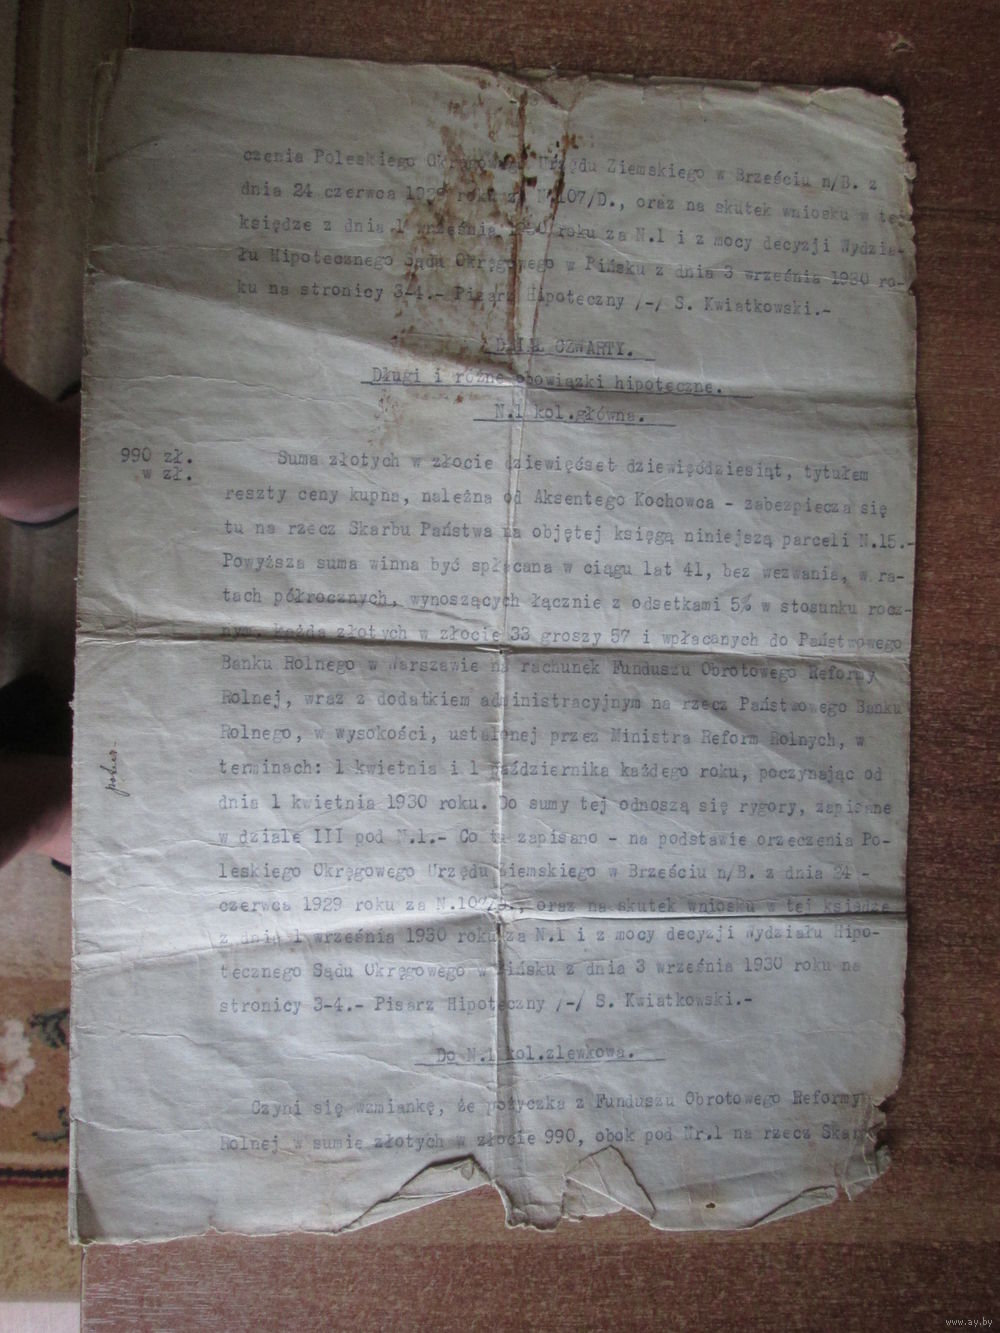 czenia Poleskiego Okręgowego Urzędu Ziemskiego w Brześciu n/B. z
dnia 24 czerwca 1929 roku za N.107/D., oraz na skutek wniosku w tej
księdze z dnia 1 września 1930 roku za N.1 i z mocy decyzji Wydzia-
łu Hipotecznego Sądu Okręgowego w Pińsku z dnia 3 września 1930 ro-
ku na stronicy 3-4.- Pisarz Hipoteczny /-/ S. Kwiatkowski.-
DZIAŁ CZWARTY.
Długi i różne obowiązki hipoteczne.
N.1 kol.główna.
990 zł.
w zł.
Suma złotych w złocie dziewięćset dziewięćdziesiąt, tytułem
reszty ceny kupna, należna od Aksentego Kochowca - zabezpiecza się
tu na rzecz Skarbu Państwa na objętej księgą niniejszą parceli N.15.-
Powyższa suma winna być spłacana w ciągu lat 41, bez wezwania, w ra-
tach półrocznych, wynoszących łącznie z odsetkami 5% w stosunku rocz-
nym, każda złotych w złocie 33 groszy 57 i wpłacanych do Państwowego
Banku Rolnego w Warszawie na rachunek Funduszu Obrotowego Reformy
Rolnej, wraz z dodatkiem administracyjnym na rzecz Państwowego Banku
Rolnego, w wysokości, ustalonej przez Ministra Reform Rolnych, w
terminach: 1 kwietnia i 1 października każdego roku, poczynając od
dnia 1 kwietnia 1930 roku. Do sumy tej odnoszą się rygory, zapisane
w dziale III pod N.1.- Co tu zapisano - na podstawie orzeczenia Po-
leskiego Okręgowego Urzędu Ziemskiego w Brześciu n/B. z dnia 24 -
czerwca 1929 roku za N.107/D., oraz na skutek wniosku w tej księdze
z dnia 1 września 1930 roku za N.1 i z mocy decyzji Wydziału Hipo-
tecznego Sądu Okręgowego w Pińsku z dnia 3 września 1930 roku na
stronicy 3-4.- Pisarz Hipoteczny /-/ S. Kwiatkowski.-
Do N.1 kol.zlewkowa.
Czyni się wzmiankę, że pożyczka z Funduszu Obrotowego Reformy
Rolnej w sumie złotych w złocie 990, obok pod Nr.1 na rzecz Skarbu
www.ay.by